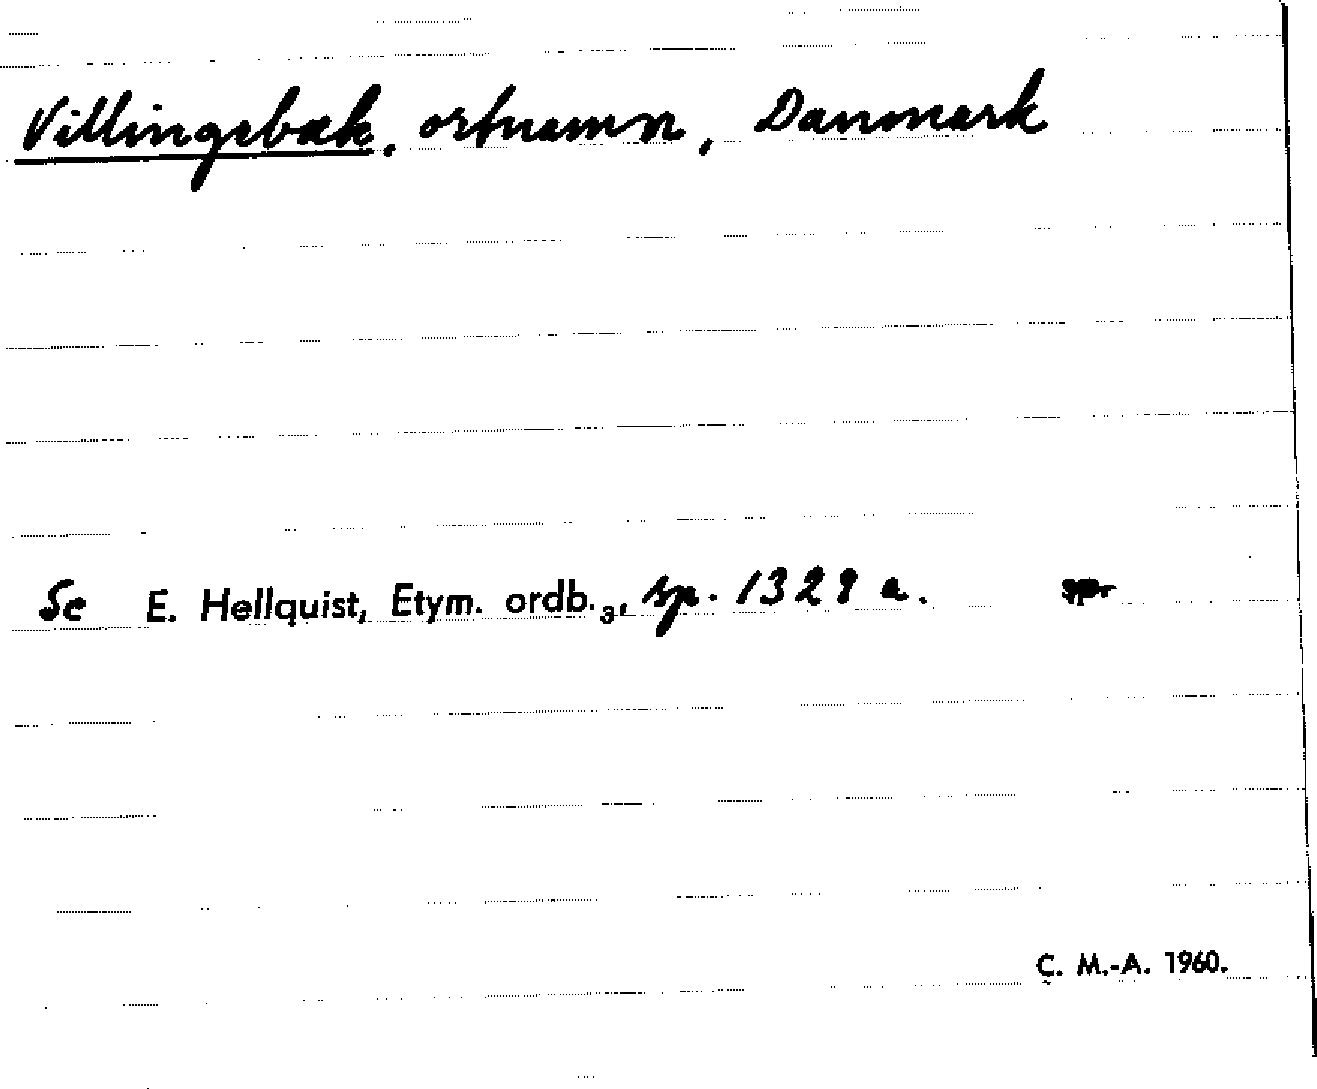 Villingebæk, ortnamn, Danmark
Se E. Hellquist, Etym. ordb.₃, sp. 1329 a.
C. M.-A. 1960.